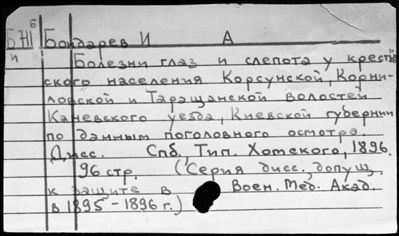 БЖ б Бондарев И А
и Болезни глаз и слепота у крестьян
ского населения Корсунской, Корни-
ловской и Таращанской волостей
Каневского уезда, Киевской губернии
по данным поголовного осмотра.
Дисс. Спб, Тип. Хотского, 1896.
96 стр. (Серия дисс, допущ,
к защите в Воен. Мед. Акад.
в 1895-1896 г.)